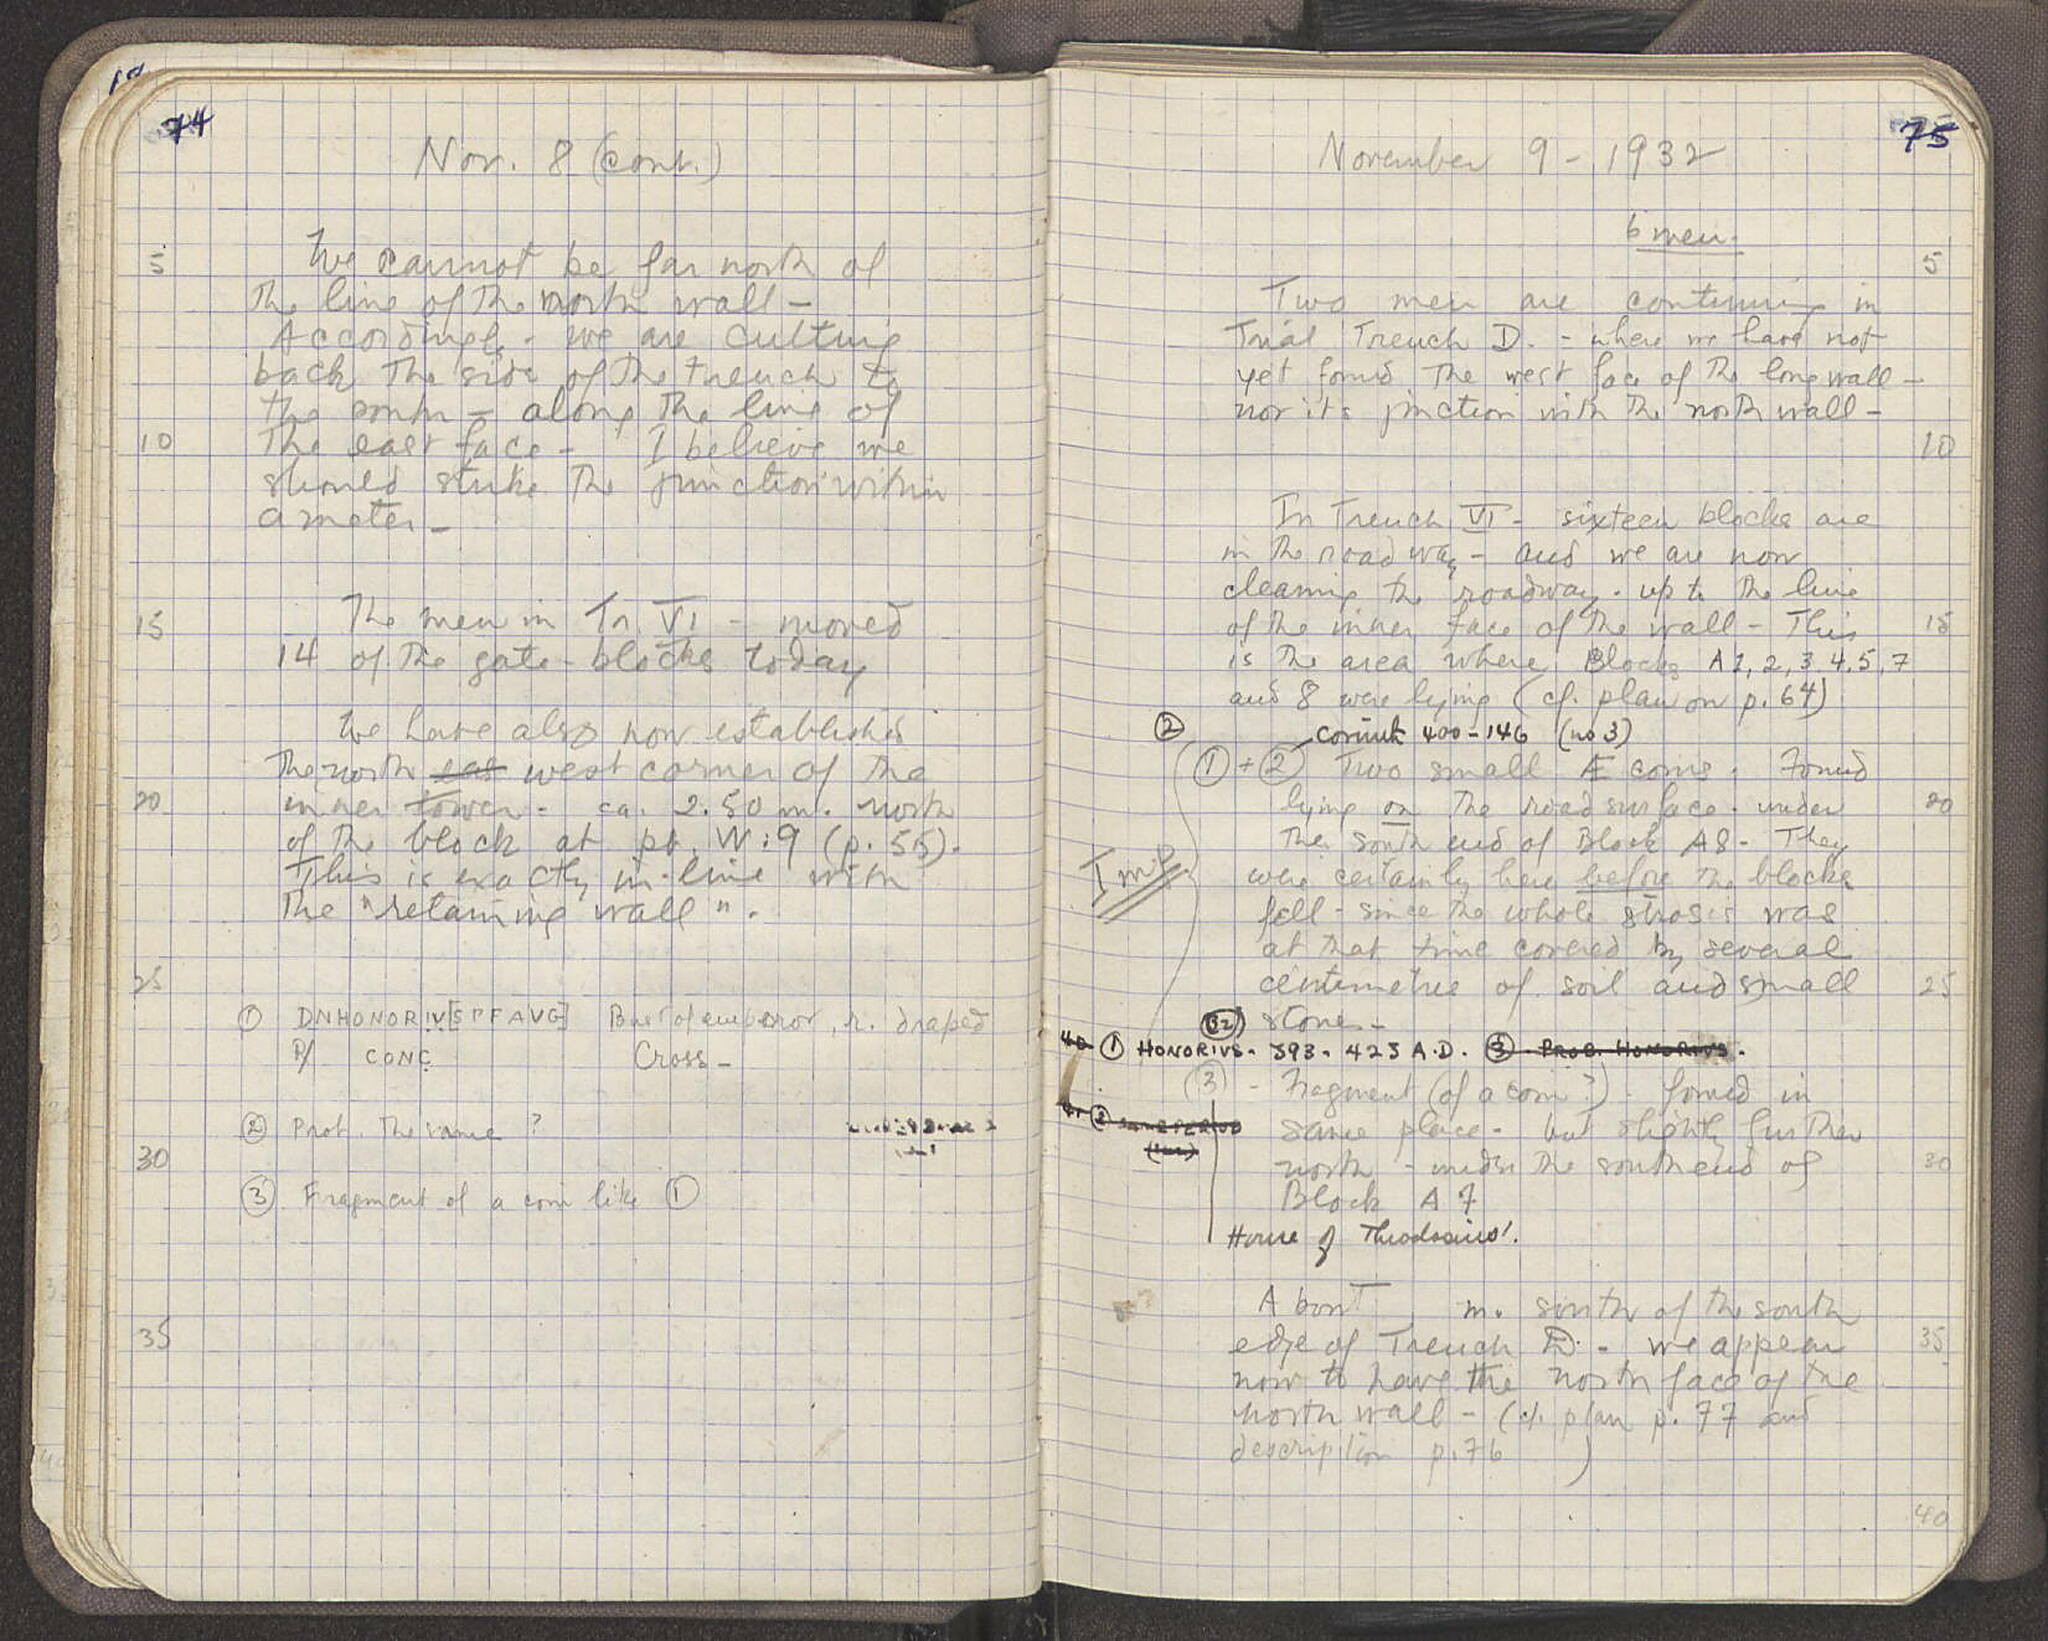 74
Nov. 8 (cont.)
5
We cannot be far north of
the line of the north wall –
Accordingly – we are cutting
back the side of the trench to
the south – along the line of
10
the east face – I believe we
should strike the junction within
a meter –
15
The men in Tr. VI – moved
14 of the gate-blocks today
We have also now established
the north east west corner of the
20
inner tower – ca. 2.50 m. north
of the block at pt. W:9 (p. 55).
This is exactly in-line with
the "retaining wall".
25
① DNHONORIV[SPFAVG] Bust of emperor, r. draped
R/ CONC Cross –
② Prob. the same ?
30
③ Fragment of a coin like ①
35
75
November 9 – 1932
6 men.
5
Two men are continuing in
Trial Trench D. – where we have not
yet found the west face of the long wall –
nor its junction with the north wall –
10
In Trench VI – sixteen blocks are
in the roadway – and we are now
cleaning the roadway – up to the line
of the inner face of the wall – This
15
is the area where Blocks A 1, 2, 3, 4, 5, 7
and 8 were lying (cf. plan on p. 64)
② Corinth 400–146 (no 3)
① + ② Two small Æ coins. Found
lying on the road surface – under
20
the south end of Block A8 – They
were certainly here before the blocks
fell – since the whole stosis was
at that time covered by several
centimetres of soil and small
25
stones –
40 ① HONORIVS. 393–423 A.D. ③ PROB. HONORIVS.
③ – Fragment (of a coin?) – found in
same place – but slightly further
41 ② SAME PERIOD
north – under the south end of
30
Block A 7
House of Theodosius'.
About m. south of the south
edge of Trench D. – we appear
35
now to have the north face of the
north wall – (cf. plan p. 77 and
description p. 76 )
40